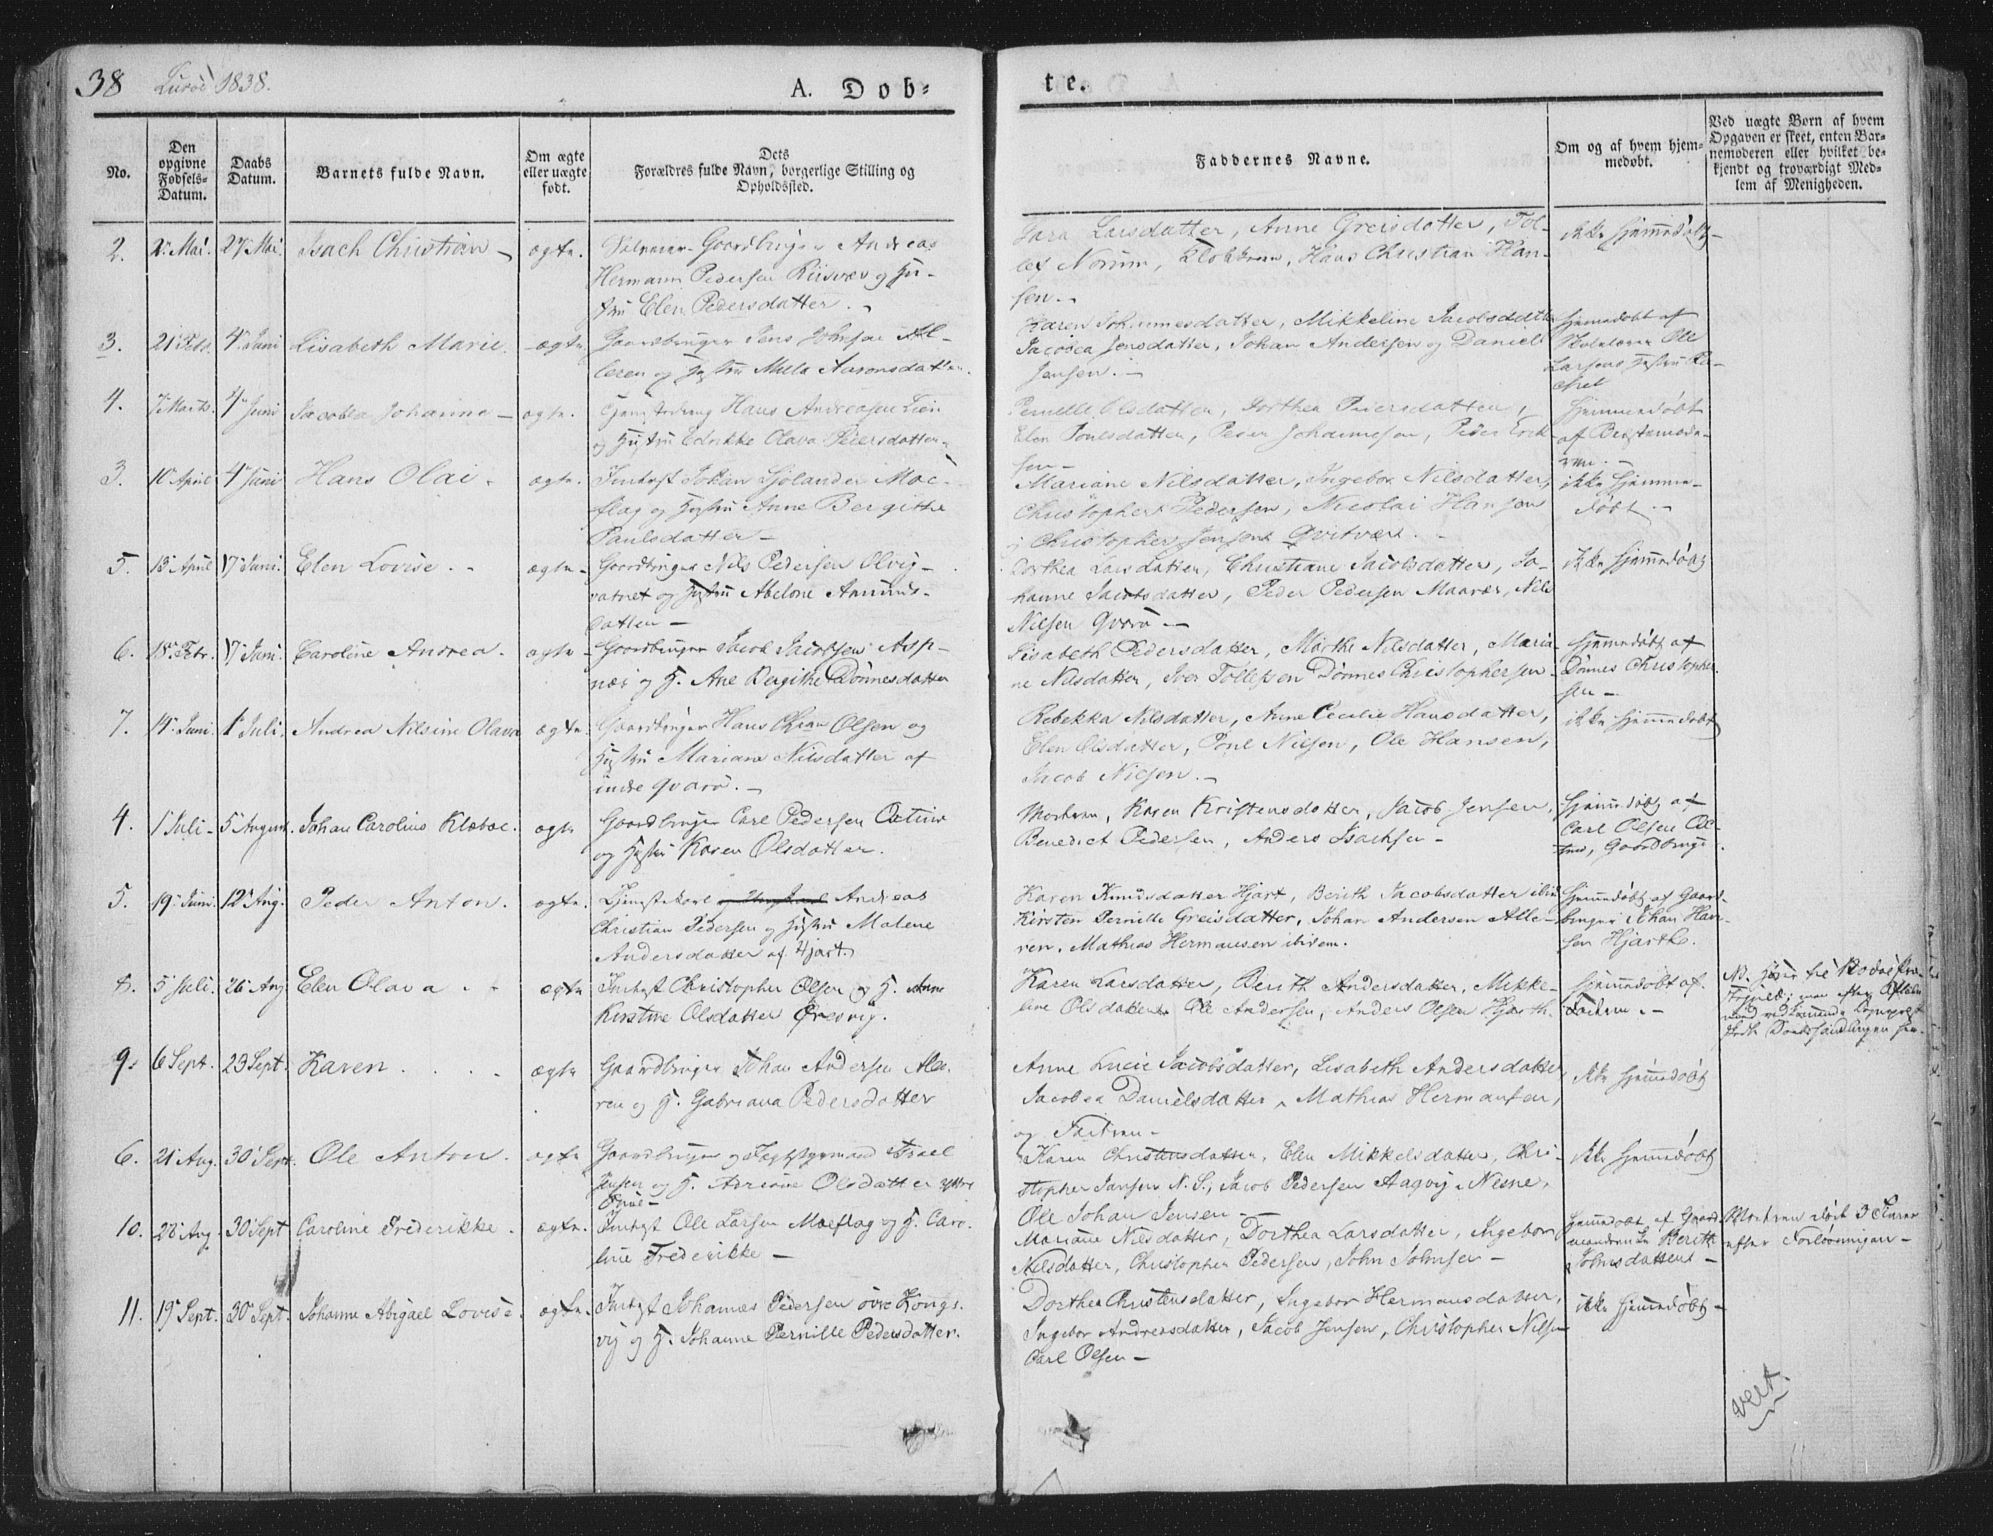 38 Lurøe 1838.
A. Dob-
te.
No.
Den opgivne Fødsels-Datum.
Daabs Datum.
Barnets fulde Navn.
Om ægte eller uægte født.
Dets Forældres fulde Navn, borgerlige Stilling og Opholdssted.
Faddernes Navne.
Om og af hvem hjemmedøbt.
Ved uægte Børn af hvem Opgaven er skeet, enten Barnemoderen eller hvilket bekjendt og troværdigt Medlem af Menigheden.
2. 2 Mai. 27 Mai. Isach Christian ægte. Gaardbruger Andreas
Hermann Pedersen og Hu-
stru Elen Pedersdatter.
Lars datter, Anne Greisdatter, Tol-
lef Norum, Klokkeren, Hans Christian Han-
sen.
ikke hjemmedøbt
3. 21 Febr. 4 Juni Lisabeth Marie. ægte. Gaardbruger Jens Johnsen Al-
leren og Hustru Milla Aaronsdatter.
Karen Johannesdatter, Mikkeline Jacobsdatter
Jacobea Jensdatter, Johan Andersen og Daniel
Jensen.
hjemmedøbt af
Skolelærer Ole
Larsens Hustru Ra-
chel
4. 7 Marts. 4 Juni Jacobea Johanna ægte. Hans Andreasen Lien
og Hustru Olava Peersdatter
Pernelle Olsdatter, Dorthea Peiersdatter,
Elen Poulsdatter, Peder Johannesen, Peder Erik-
sen
hjemmedøbt
af Bedstemode-
ren.
3. 10 April 4 Juni Hans Olai. ægte. Inderst Johan Sjölander Moe-
flag og Hustru Anne Bergithe
Paulsdatter
Mariane Nilsdatter, Ingebor Nilsdatter,
Christopher Pedersen, Nicolai Hansen
Christopher Jensen Qvitvær.
ikke hjemme-
døbt.
5. 13 April 17 Juni. Elen Lovise. ægte Gaardbruger Nils Pedersen Olvig-
vatnet og Hustru Abelone Amunds-
datter
Dorthea Larsdatter, Christiane Jacobsdatter, Jo-
hanne Jacobsdatter, Peder Pedersen Maavær, Nils
Nilsen Qvarø
ikke hjemmedøbt
6. 18 Febr. 17 Juni. Caroline Andrea. ægte Gaardbruger Jacob Jacobsen Asp-
næs og H. Ane Bergithe Dönnesdatter
Lisabeth Pedersdatter, Marthe Nilsdatter, Maria-
ne Nilsdatter, Iver Tollefsen Dönnes Christophersen
hjemmedøbt af
Dönnes Christopher-
sen
7. 14 Juni. 1 Juli. Andrea Nilsine Olava ægte. Gaardbruger Hans Chrian Olsen og
Hustru Mariane Nilsdatter af
indre Qvarø.
Rebekka Nilsdatter, Anne Cecilie Hansdatter,
Elen Olsdatter, Poul Nilsen, Ole Hansen,
Jacob Nielsen.
ikke hjemmedøbt
4. 1 Juli 5 August. Johan Carolius Klæboe. ægte Gaardbruger Carl Pedersen
og Hustru Karen Olsdatter.
Moderen, Karen Kristensdatter, Jacob Jensen,
Benedict Pedersen, Anders Isachsen
hjemmedøbt af
Carl Olsen
Gaardbruger.
5. 19 Juni. 12 Aug. Peder Anton. ægte. Tjenestekarl Andreas
Christian Pedersen og Hustru Malene
Andersdatter af Hjart.
Karen Knudsdatter Hjart, Berith Jacobsdatter ibid.
Kirsten Pernille Greisdatter, Johan Andersen Alle-
ren, Mathias Hermansen ibidem.
hjemmedøbt af Gaard-
bruger Johan Han-
sen Hjarthe.
8. 5 Juli. 26 Aug Elen Olava. ægte Inderst Christopher Olsen og H. Anne
Kirstine Olsdatter Öresvig.
Karen Larsdatter, Berith Andersdatter, Mikke-
line Olsdatter, Ole Andersen, Anders Olsen Hjarth.
hjemmedøbt af
Faderen.
NB. hører til Rodøe Præ-
stegjeld;
9. 6 Sept. 23 Sept. Karen. ægte Gaardbruger Johan Andersen Alle-
ren og H. Gabriana Pedersdatter
Anne Lucie Jacobsdatter, Lisabeth Andersdatter
Jacobea Danielsdatter, Mathias Hermansen,
og Faderen
ikke hjemmedøbt
6. 21 Aug. 30 Sept. Ole Anton. ægte Gaardbruger og Israel
Jensen og H. Adriane Olsdatter
Karen Christensdatter, Elen Mikkelsdatter, Chri-
stopher Jansen N. S., Jacob Pedersen Aagvig Nesne,
Ole Johan Jensen
ikke hjemmedøbt
10. 28 Aug. 30 Sept Caroline Frederikke. ægte. Inderst Ole Larsen Moeflag og H. Caro-
line Frederikke
Mariane Nilsdatter, Dorthea Larsdatter, Ingebor
Nilsdatter, Christopher Pedersen, John Johnsen
hjemmedøbt af Gaard-
Berith
Johnsdatter
Moderen død 3 Timer
efter Forløsningen
11. 19 Sept. 30 Sept. Johanna Abigael Lovise. ægte. Inderst Johannes Pedersen övre Kongs-
vig og H. Johanne Pernille Pedersdatter.
Dorthea Christensdatter, Ingebor Hermansdatter,
Ingebor Andreasdatter, Jacob Jensen, Christopher Nilsen
Carl Olsen
ikke hjemmedøbt
vert.